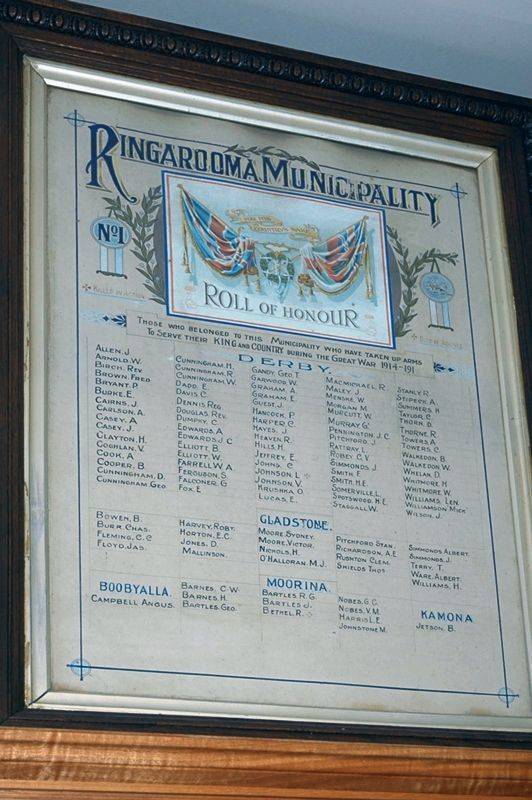 RINGAROOMA MUNICIPALITY
FOR THE
COUNTRY'S
No1
KILLED IN ACTION
ROLL OF HONOUR
THOSE WHO BELONGED TO THIS MUNICIPALITY WHO HAVE TAKEN UP ARMS
TO SERVE THEIR KING AND COUNTRY DURING THE GREAT WAR 1914-191
DERBY.
ALLEN. J
ARNOLD. W.
BIRCH. REV
BROWN. FRED
BRYANT. P
BURKE. E
CAIRNS. J
CARLSON. A
CASEY. A
CASEY J
CLAYTON. H
COGHLAN. V
COOK. A
COOPER. B
CUNNINGHAM. D
CUNNINGHAM. GEO.
CUNNINGHAM. H.
CUNNINGHAM. R.
CUNNINGHAM. W
DADD. E
DAVIS C.
DENNIS REG
DOUGLAS. REV.
DUMPHY. C
EDWARDS. A
EDWARDS. J.C
ELLIOTT. B
ELLIOTT. W.
FARRELL. W.A
FERGUSON. S
FALCONER. G
FOX. E
GANDY. GEO. T.
GARWOOD. W.
GRAHAM. A
GRAHAM. E
GUEST. J
HANCOCK. P
HARPER. C
HAYES. J
HEAVEN. R
HILLS. H
JEFFREY. E
JOHNS. C
JOHNSON. L
JOHNSON. V
KRUSHKA. O
LUCAS. E.
MACMICHAEL. R
MALEY. J
MENSKE. W
MORGAN. M
MURFITT. W
MURRAY. G
PENNINGTON. J. C
PITCHFORD. J
RATTRAY. L
ROBEY. C. V
SIMMONDS. J
SMITH. F
SMITH. H.E.
SOMERVILLE. L
SPOTSWOOD. H.E.
STAGGALL. W.
STANLY. R.
STIPECK. A
SUMMERS. H
TAYLOR. C
THORN. D.
THORNE. R
TOWERS. A
TOWERS. C
WALKEDON. B
WALKEDON. W
WHELAN. D
WHITMORE. H
WHITMORE. W.
WILLIAMS. LEN.
WILLIAMSON MICK
WILSON. J.
GLADSTONE.
BOWEN. B.
BURR. CHAS.
FLEMING. C. C
FLOYD. JAS.
HARVEY. ROBT.
HORTON. E.C.
JONES. D.
MALLINSON.
MOORE. SYDNEY.
MOORE. VICTOR.
NICHOLS. H
O'HALLORAN. M.J.
PITCHFORD STAN.
RICHARDSON. A.E
RUSHTON CLEM.
SHIELDS THOS
SIMMONDS ALBERT.
SIMMONDS. J.
TERRY. T.
WARE. ALBERT.
WILLIAMS. H.
BOOBYALLA.
CAMPBELL ANGUS.
BARNES. C.W.
BARNES. H.
BARTLES. GEO.
MOORINA.
BARTLES R. G.
BARTLES J.
BETHEL. R.
NOBES. G. C
NOBES. V.M.
HARRIS L.E.
JOHNSTONE M.
KAMONA
JETSON. B.